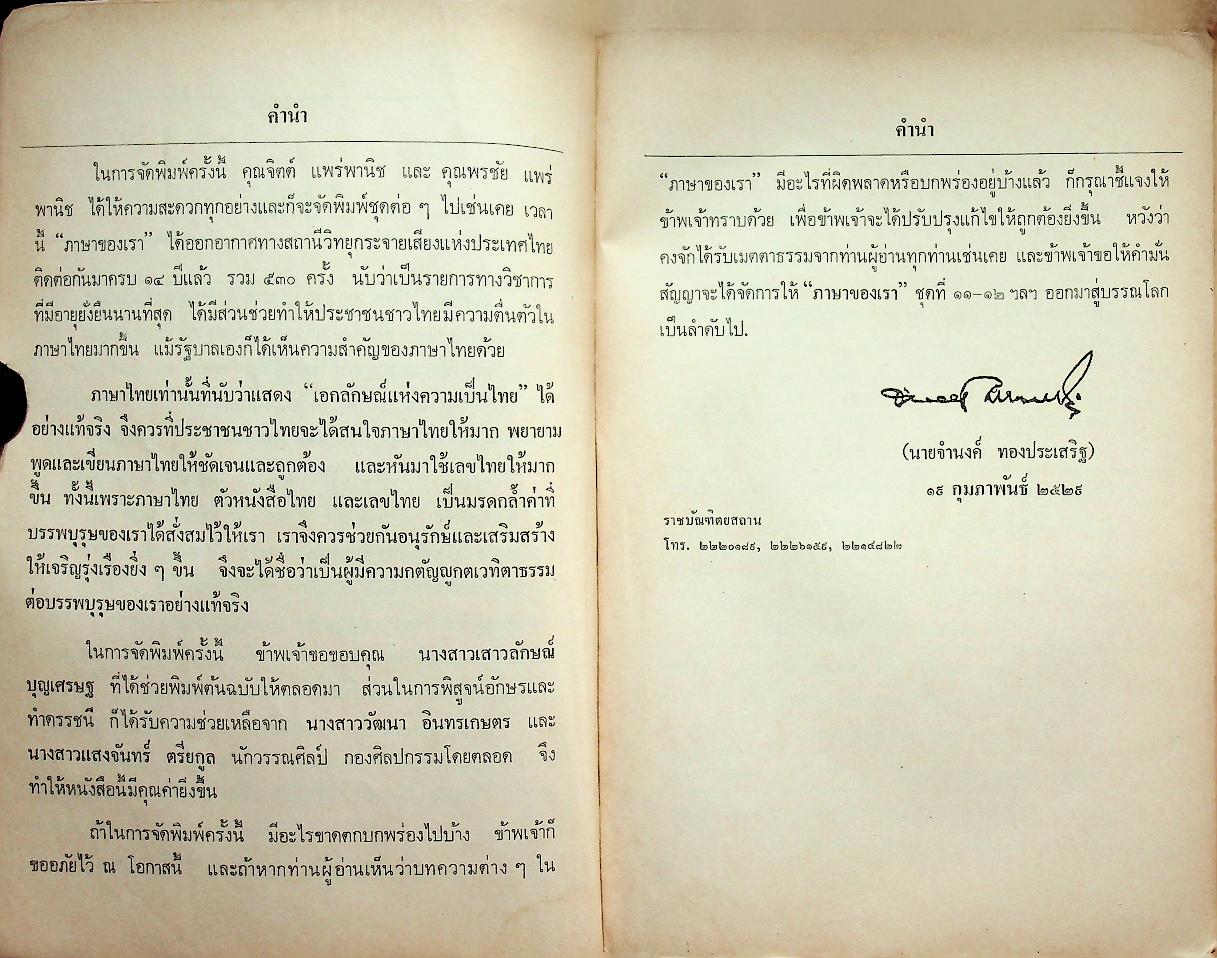 คำนำ
ในการจัดพิมพ์ครั้งนี้ คุณจิตต์ แพร่พานิช และ คุณพรชัย แพร่
พานิช ได้ให้ความสะดวกทุกอย่างและก็จะจัดพิมพ์ชุดต่อ ๆ ไปเช่นเคย เวลา
นี้ “ภาษาของเรา” ได้ออกอากาศทางสถานีวิทยุกระจายเสียงแห่งประเทศไทย
ติดต่อกันมาครบ ๑๔ ปีแล้ว รวม ๕๓๐ ครั้ง นับว่าเป็นรายการทางวิชาการ
ที่มีอายุยั่งยืนนานที่สุด ได้มีส่วนช่วยทำให้ประชาชนชาวไทยมีความตื่นตัวใน
ภาษาไทยมากขึ้น แม้รัฐบาลเองก็ได้เห็นความสำคัญของภาษาไทยด้วย
ภาษาไทยเท่านั้นที่นับว่าแสดง “เอกลักษณ์แห่งความเป็นไทย” ได้
อย่างแท้จริง จึงควรที่ประชาชนชาวไทยจะได้สนใจภาษาไทยให้มาก พยายาม
พูดและเขียนภาษาไทยให้ชัดเจนและถูกต้อง และหันมาใช้เลขไทยให้มาก
ขึ้น ทั้งนี้เพราะภาษาไทย ตัวหนังสือไทย และเลขไทย เป็นมรดกล้ำค่าที่
บรรพบุรุษของเราได้สั่งสมไว้ให้เรา เราจึงควรช่วยกันอนุรักษ์และเสริมสร้าง
ให้เจริญรุ่งเรืองยิ่ง ๆ ขึ้น จึงจะได้ชื่อว่าเป็นผู้มีความกตัญญูกตเวทิตาธรรม
ต่อบรรพบุรุษของเราอย่างแท้จริง
ในการจัดพิมพ์ครั้งนี้ ข้าพเจ้าขอขอบคุณ นางสาวเสาวลักษณ์
บุญเศรษฐ ที่ได้ช่วยพิมพ์ต้นฉบับให้ตลอดมา ส่วนในการพิสูจน์อักษรและ
ทำดรรชนี ก็ได้รับความช่วยเหลือจาก นางสาววัฒนา อินทรเกษตร และ
นางสาวแสงจันทร์ ตรียกูล นักวรรณศิลป์ กองศิลปกรรมโดยตลอด จึง
ทำให้หนังสือนี้มีคุณค่ายิ่งขึ้น
ถ้าในการจัดพิมพ์ครั้งนี้ มีอะไรขาดตกบกพร่องไปบ้าง ข้าพเจ้าก็
ขออภัยไว้ ณ โอกาสนี้ และถ้าหากท่านผู้อ่านเห็นว่าบทความต่าง ๆ ใน
คำนำ
“ภาษาของเรา” มีอะไรที่ผิดพลาดหรือบกพร่องอยู่บ้างแล้ว ก็กรุณาชี้แจงให้
ข้าพเจ้าทราบด้วย เพื่อข้าพเจ้าจะได้ปรับปรุงแก้ไขให้ถูกต้องยิ่งขึ้น หวังว่า
คงจักได้รับเมตตาธรรมจากท่านผู้อ่านทุกท่านเช่นเคย และข้าพเจ้าขอให้คำมั่น
สัญญาจะได้จัดการให้ “ภาษาของเรา” ชุดที่ ๑๑-๑๒ ฯลฯ ออกมาสู่บรรณโลก
เป็นลำดับไป.
(นายจำนงค์ ทองประเสริฐ)
๑๙ กุมภาพันธ์ ๒๕๒๙
ราชบัณฑิตยสถาน
โทร. ๒๒๒๐๑๘๙, ๒๒๒๖๑๕๙, ๒๒๑๔๘๒๒